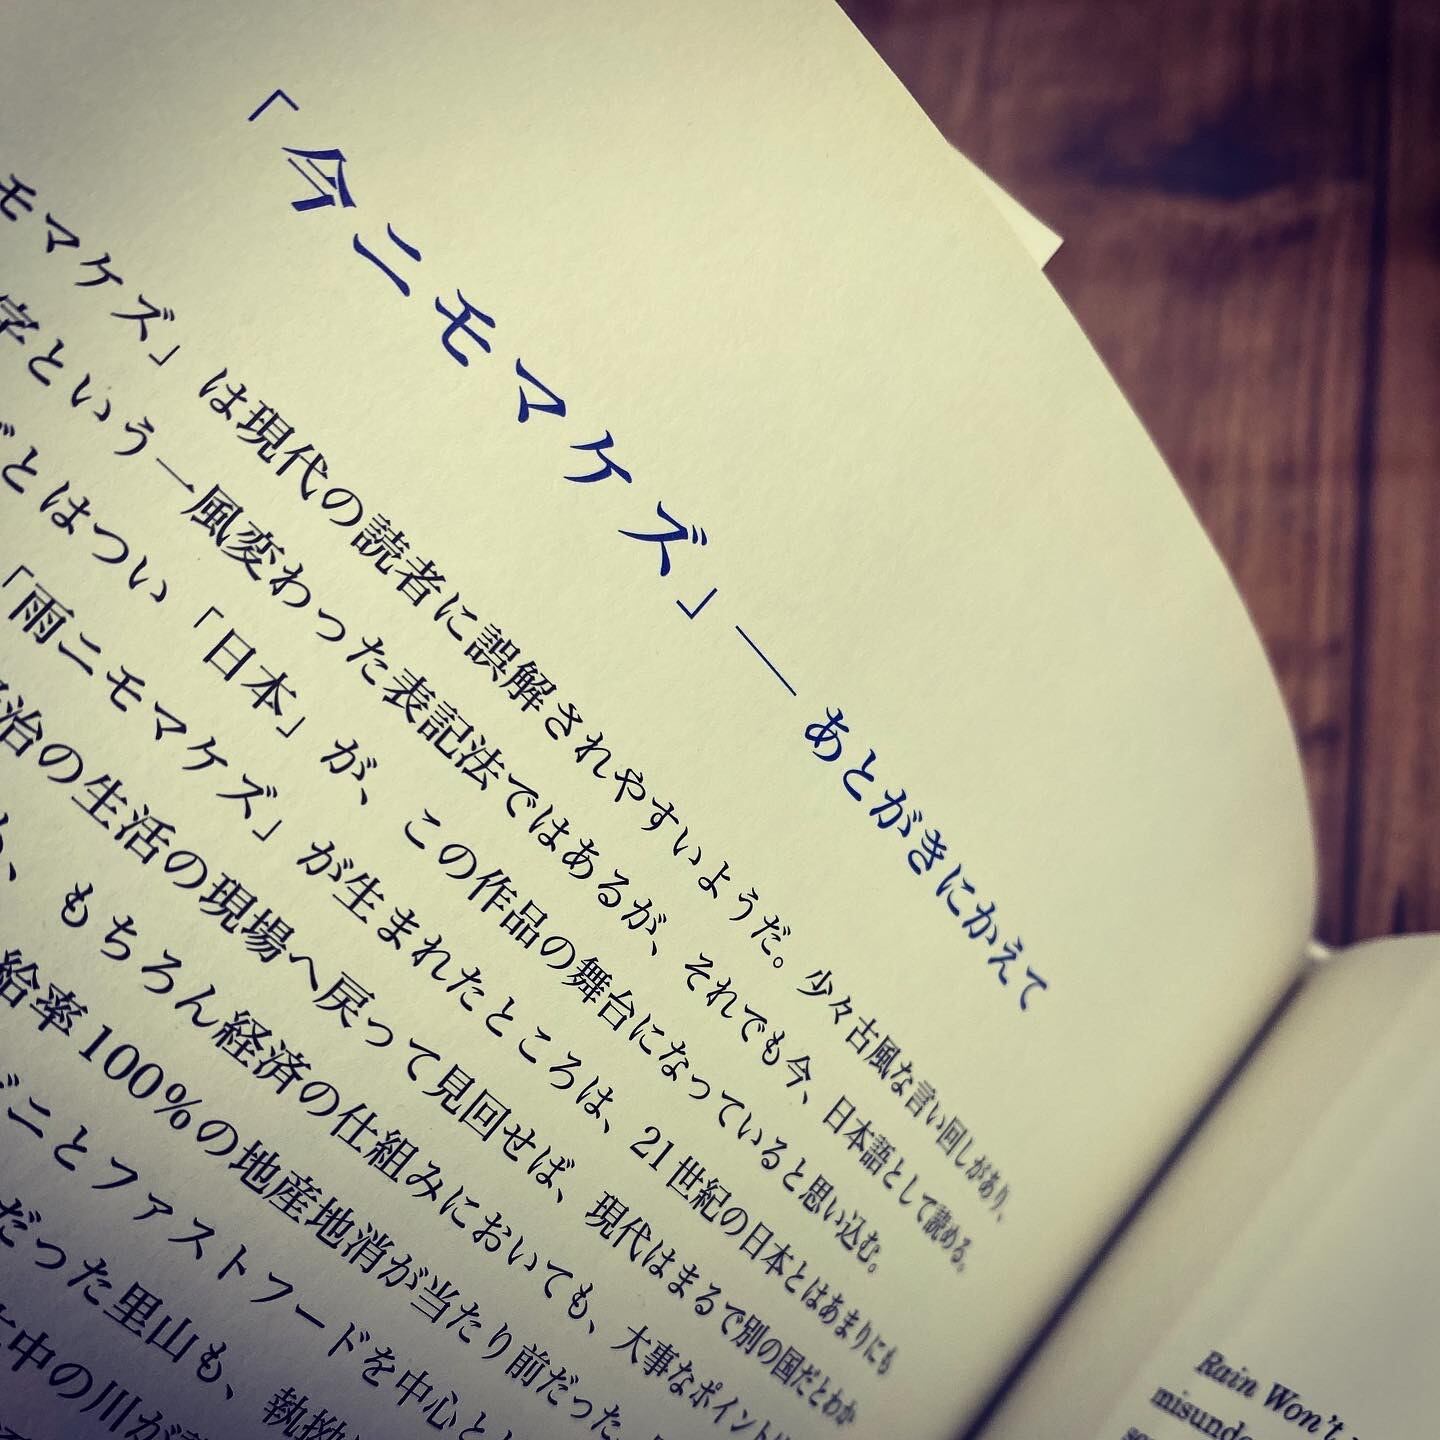 「今ニモマケズ」― あとがきにかえて
モマケズ」は現代の読者に誤解されやすいようだ。少々古風な言い回しがあり、
字という一風変わった表記法ではあるが、それでも今、日本語として読める。
とはつい「日本」が、この作品の舞台になっていると思い込む。
「雨ニモマケズ」が生まれたところは、21世紀の日本とはあまりにも
治の生活の現場へ戻って見回せば、現代はまるで別の国だとわか
、もちろん経済の仕組みにおいても、大事なポイント
給率100%の地産地消が当たり前だった。
ニとファストフードを中心と
だった里山も、執拗
中の川が
Rain Won't
misunde